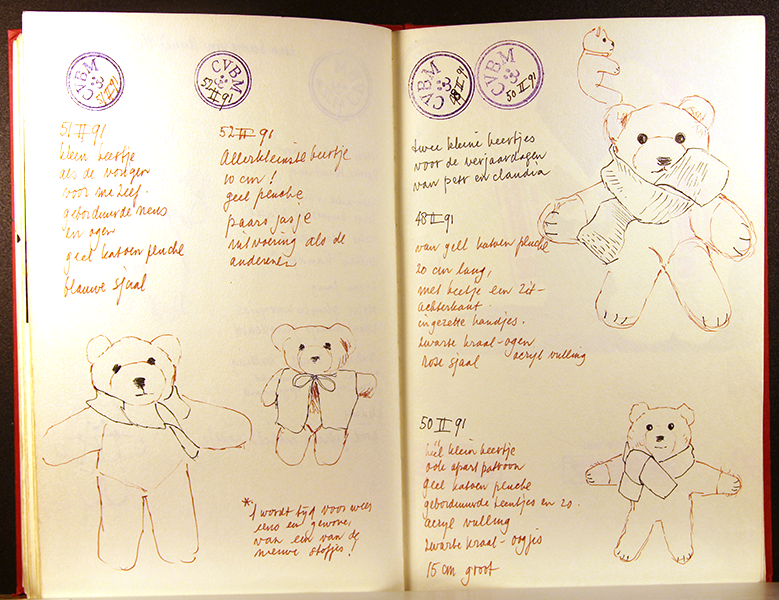 CVBM
51 II 91
CVBM
52 II 91
51 II 91
klein beertje
als de vorigen
voor me zelf.
geborduurde neus
en ogen
geel katoen pluche
blauwe sjaal
52 II 91
Allerkleinste beertje
10 cm!
geel pluche
paars jasje
uitvoering als de
anderen
* 't wordt tijd voor weer
eens en gewone,
van een van de
nieuwe stofjes!
CVBM
48 II 91
CVBM
50 II 91
twee kleine beertjes
voor de verjaardagen
van petr en claudia
48 II 91
van geel katoen pluche
20 cm lang,
met beetje een zit-
achterkant.
ingezette handjes.
zwarte kraal-ogen
rose sjaal acryl vulling
50 II 91
héél klein beertje
ook apart patroon
geel katoen pluche
geborduurde teentjes en zo.
acryl vulling
zwarte kraal-oogjes
15 cm groot